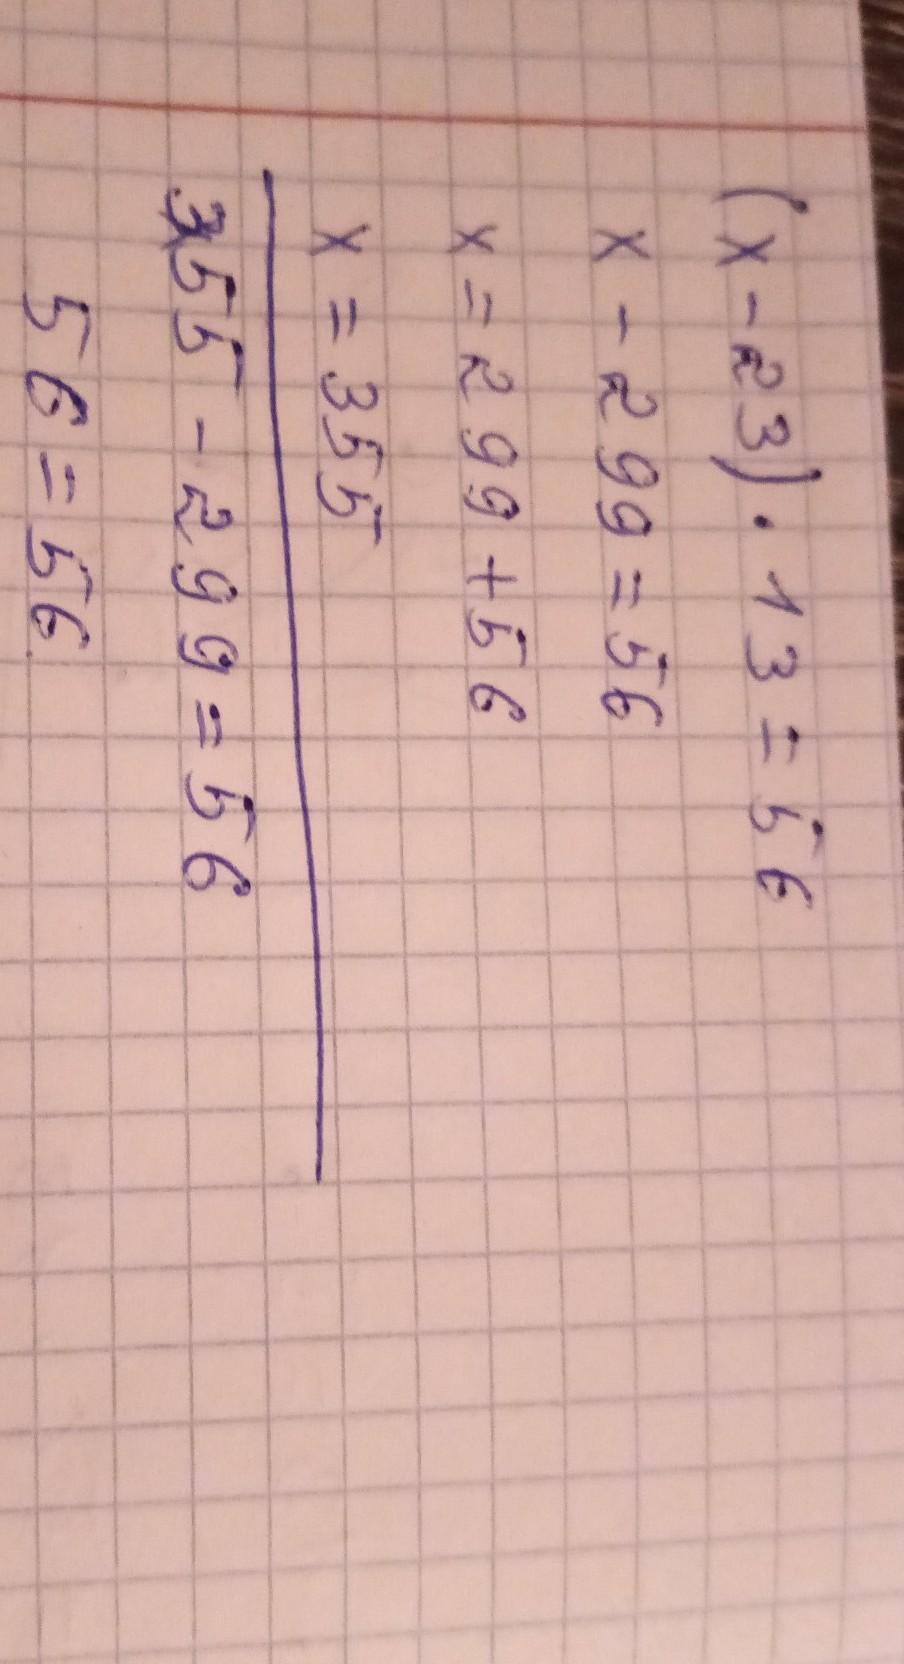 (x - 23) · 13 = 56
x - 299 = 56
x = 299 + 56
x = 355
355 - 299 = 56
56 = 56